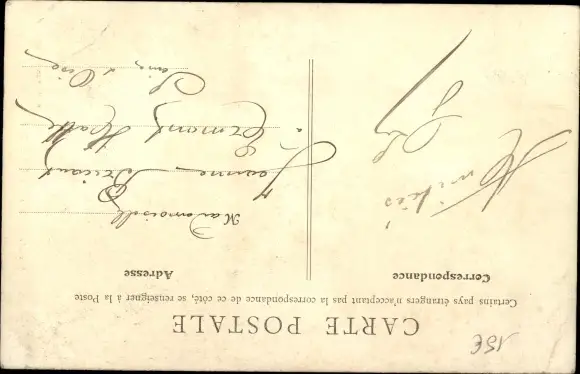 15€
CARTE POSTALE
Certains pays étrangers n'acceptant pas la correspondance de ce côté, se renseigner à la Poste
Correspondance
Adresse
Amitiés
Mademoiselle
Jeanne
à Ermont Halte
Seine et Oise